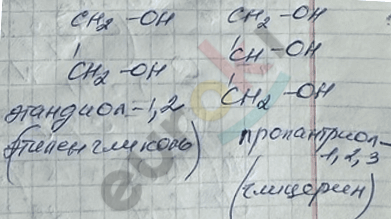 CH₂-OH
CH₂-OH
этандиол-1,2
(этиленгликоль)
CH₂-OH
CH-OH
CH₂-OH
пропантриол-
1,2,3
(глицерин)